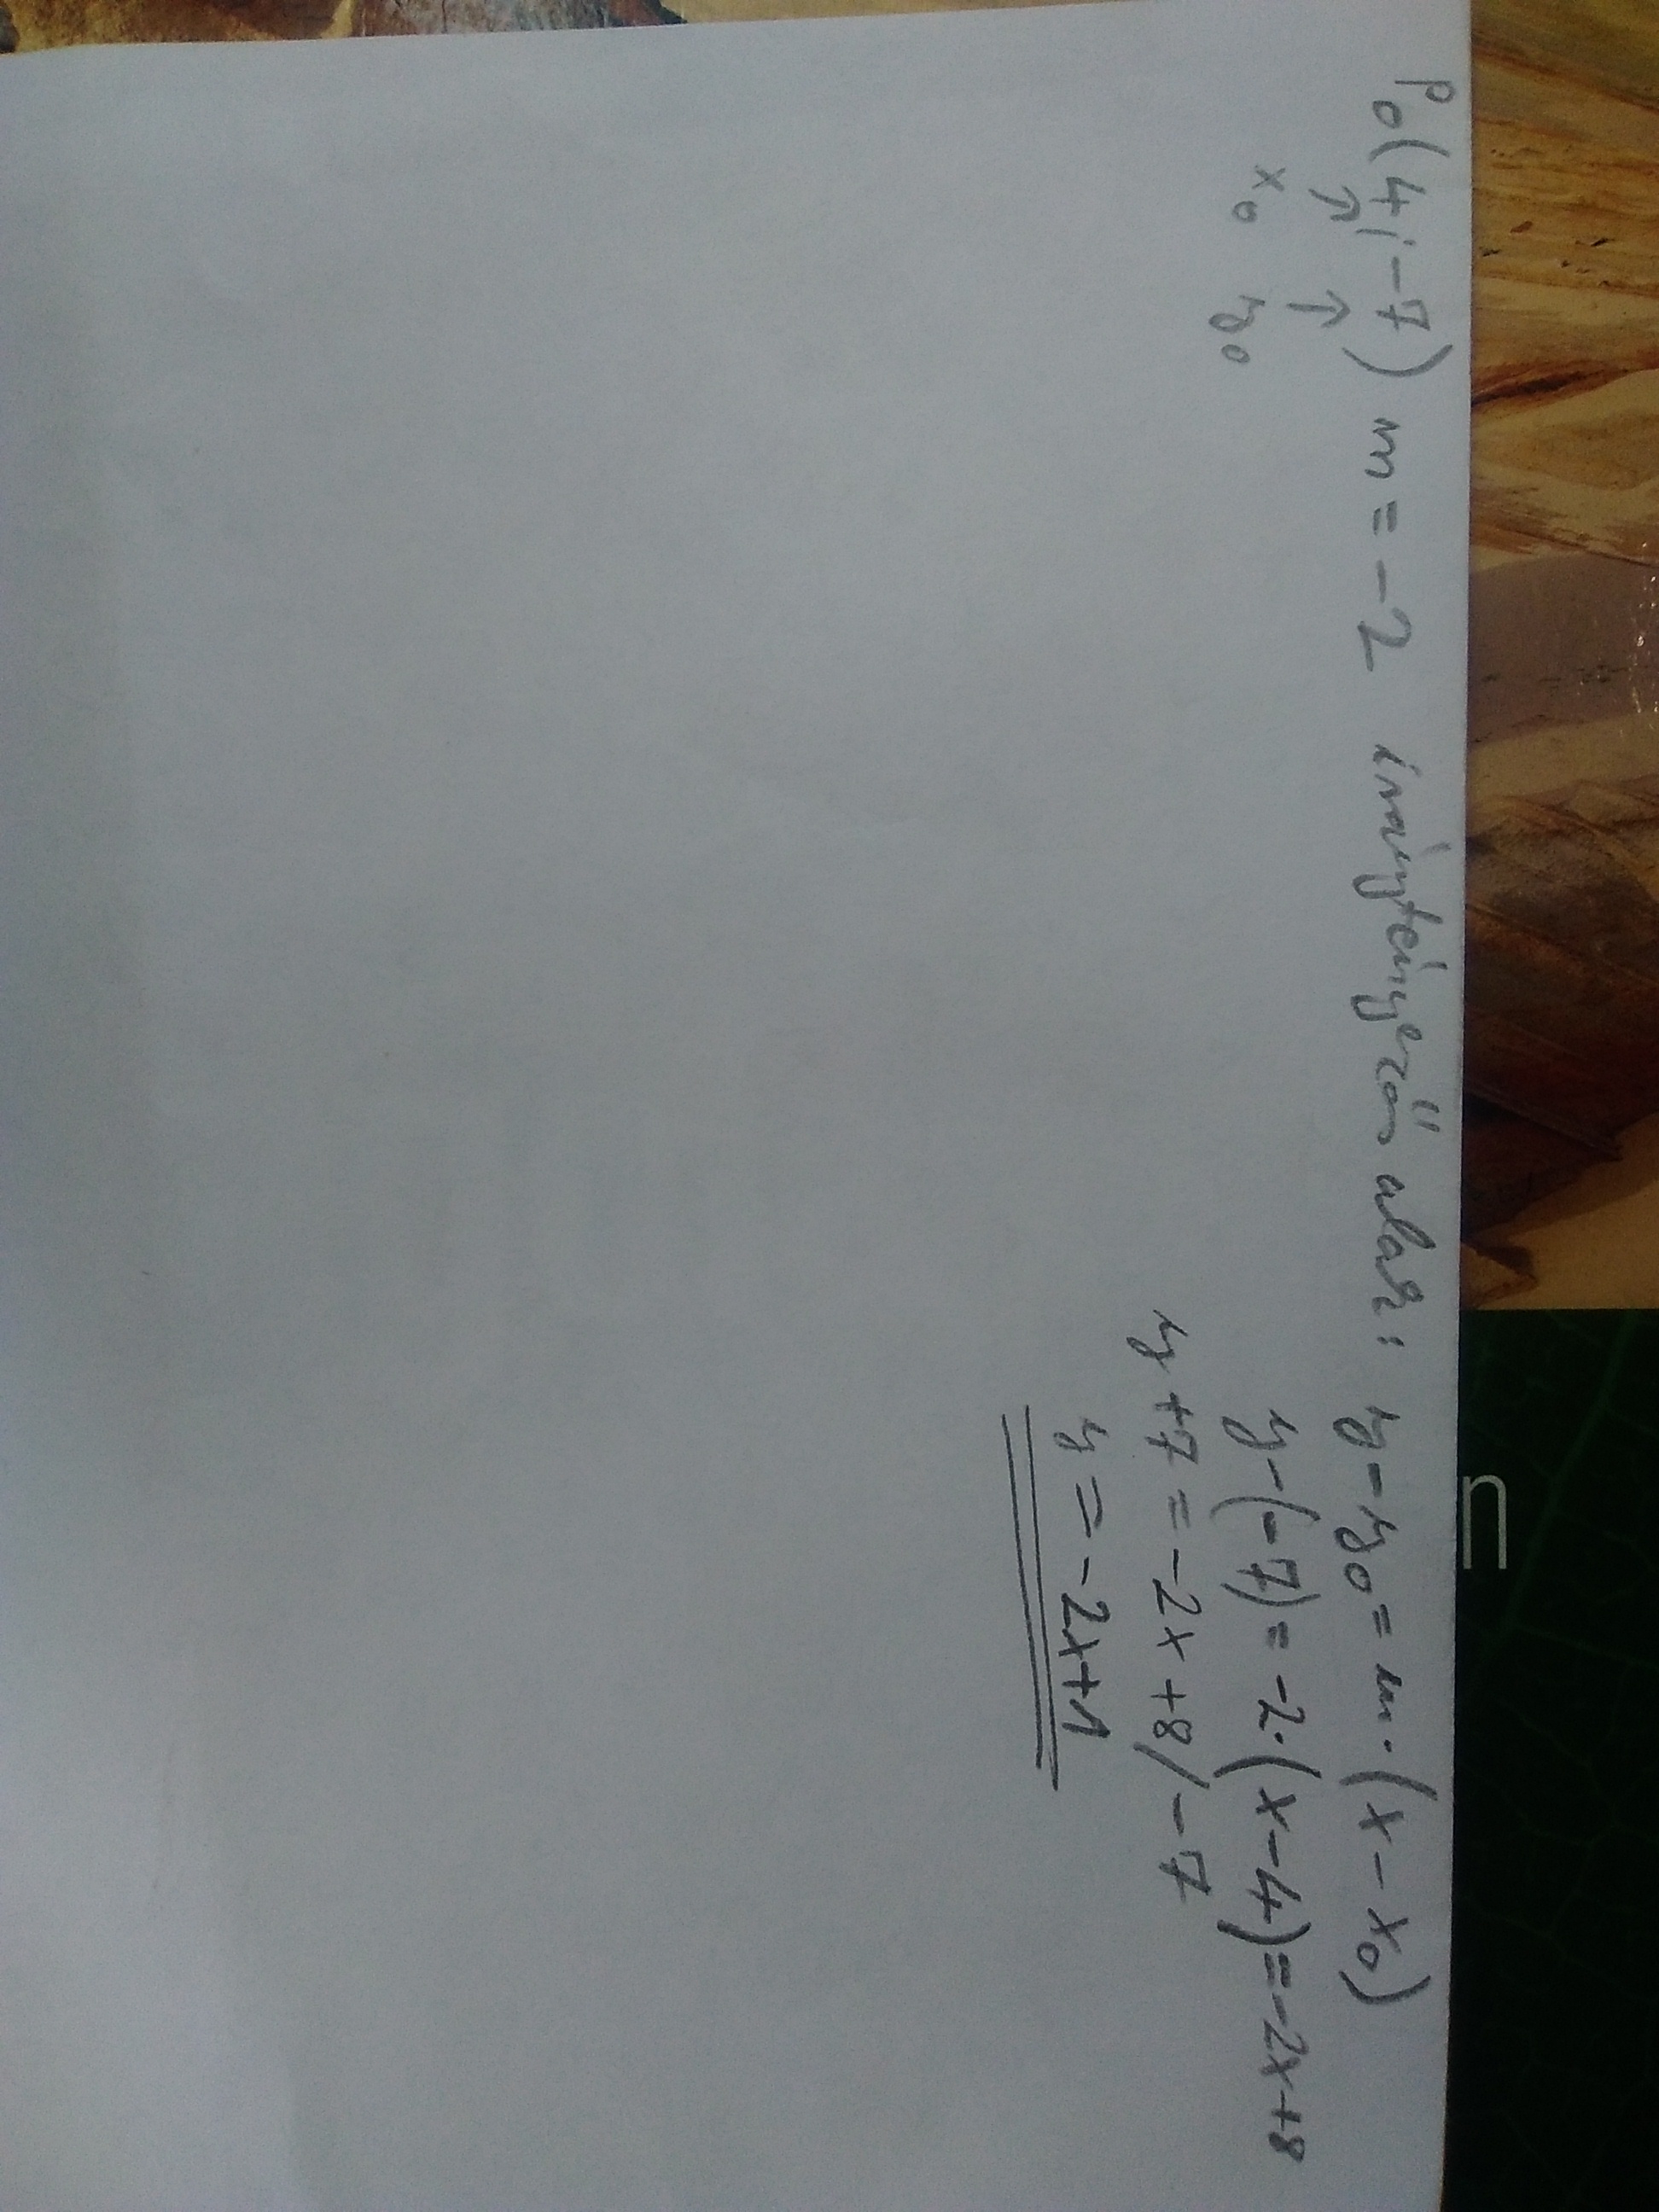 P0(4; -7) m = -2 iránytényezős alak: y-y0 = m·(x-x0)
↑ ↑
x0 y0
y-(-7) = -2·(x-4) = -2x+8
y+7 = -2x+8 /-7
y = -2x+1
n